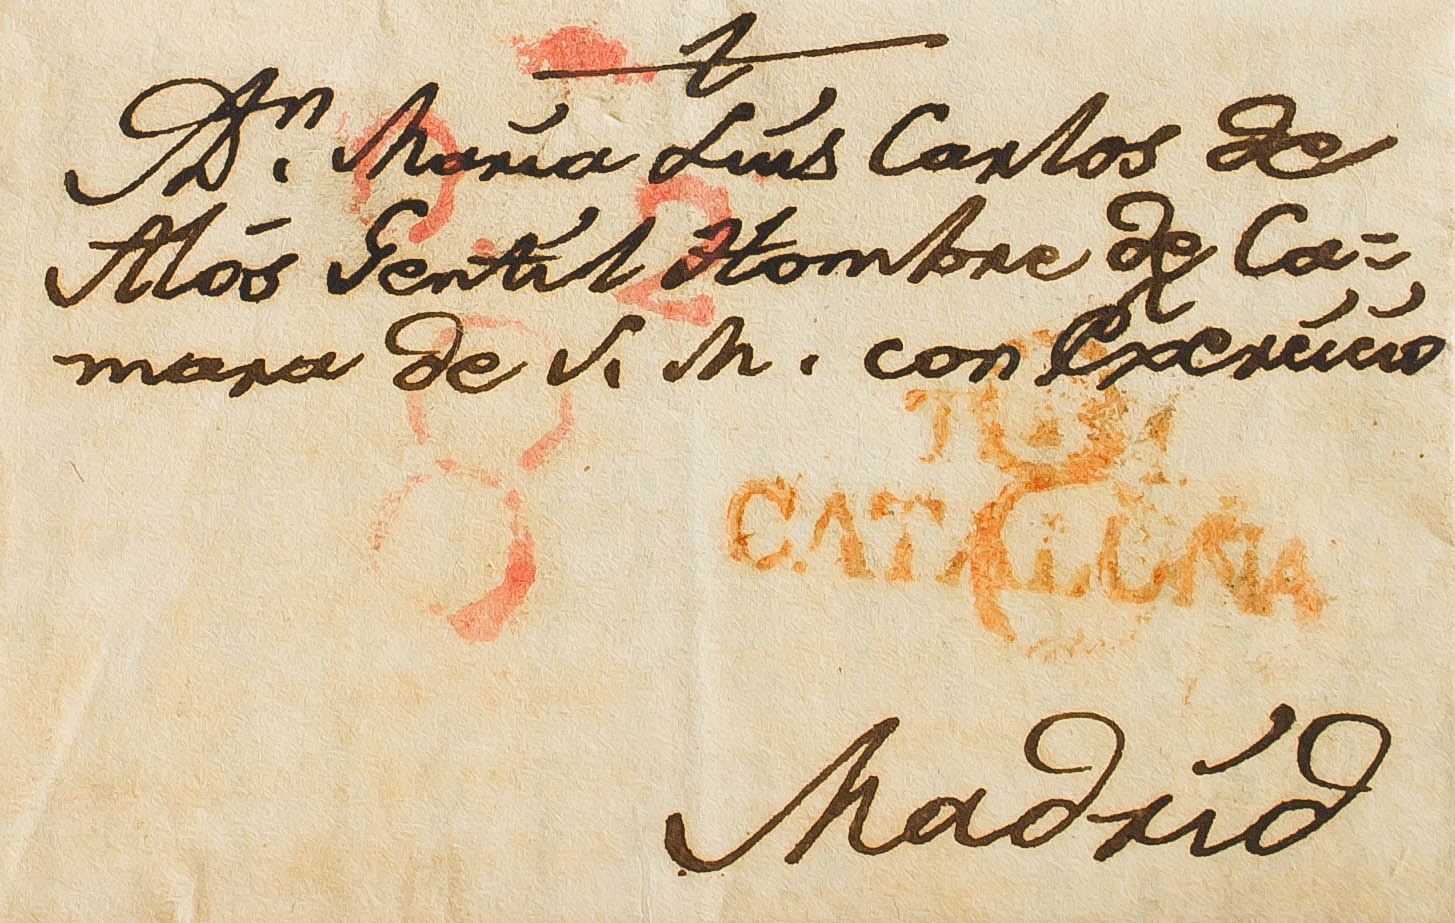 Dn. María Luís Carlos de
Alós Gentíl Hombre de Ca=
mara de S. M. con Exercício
2
CATALUÑA
Madríd